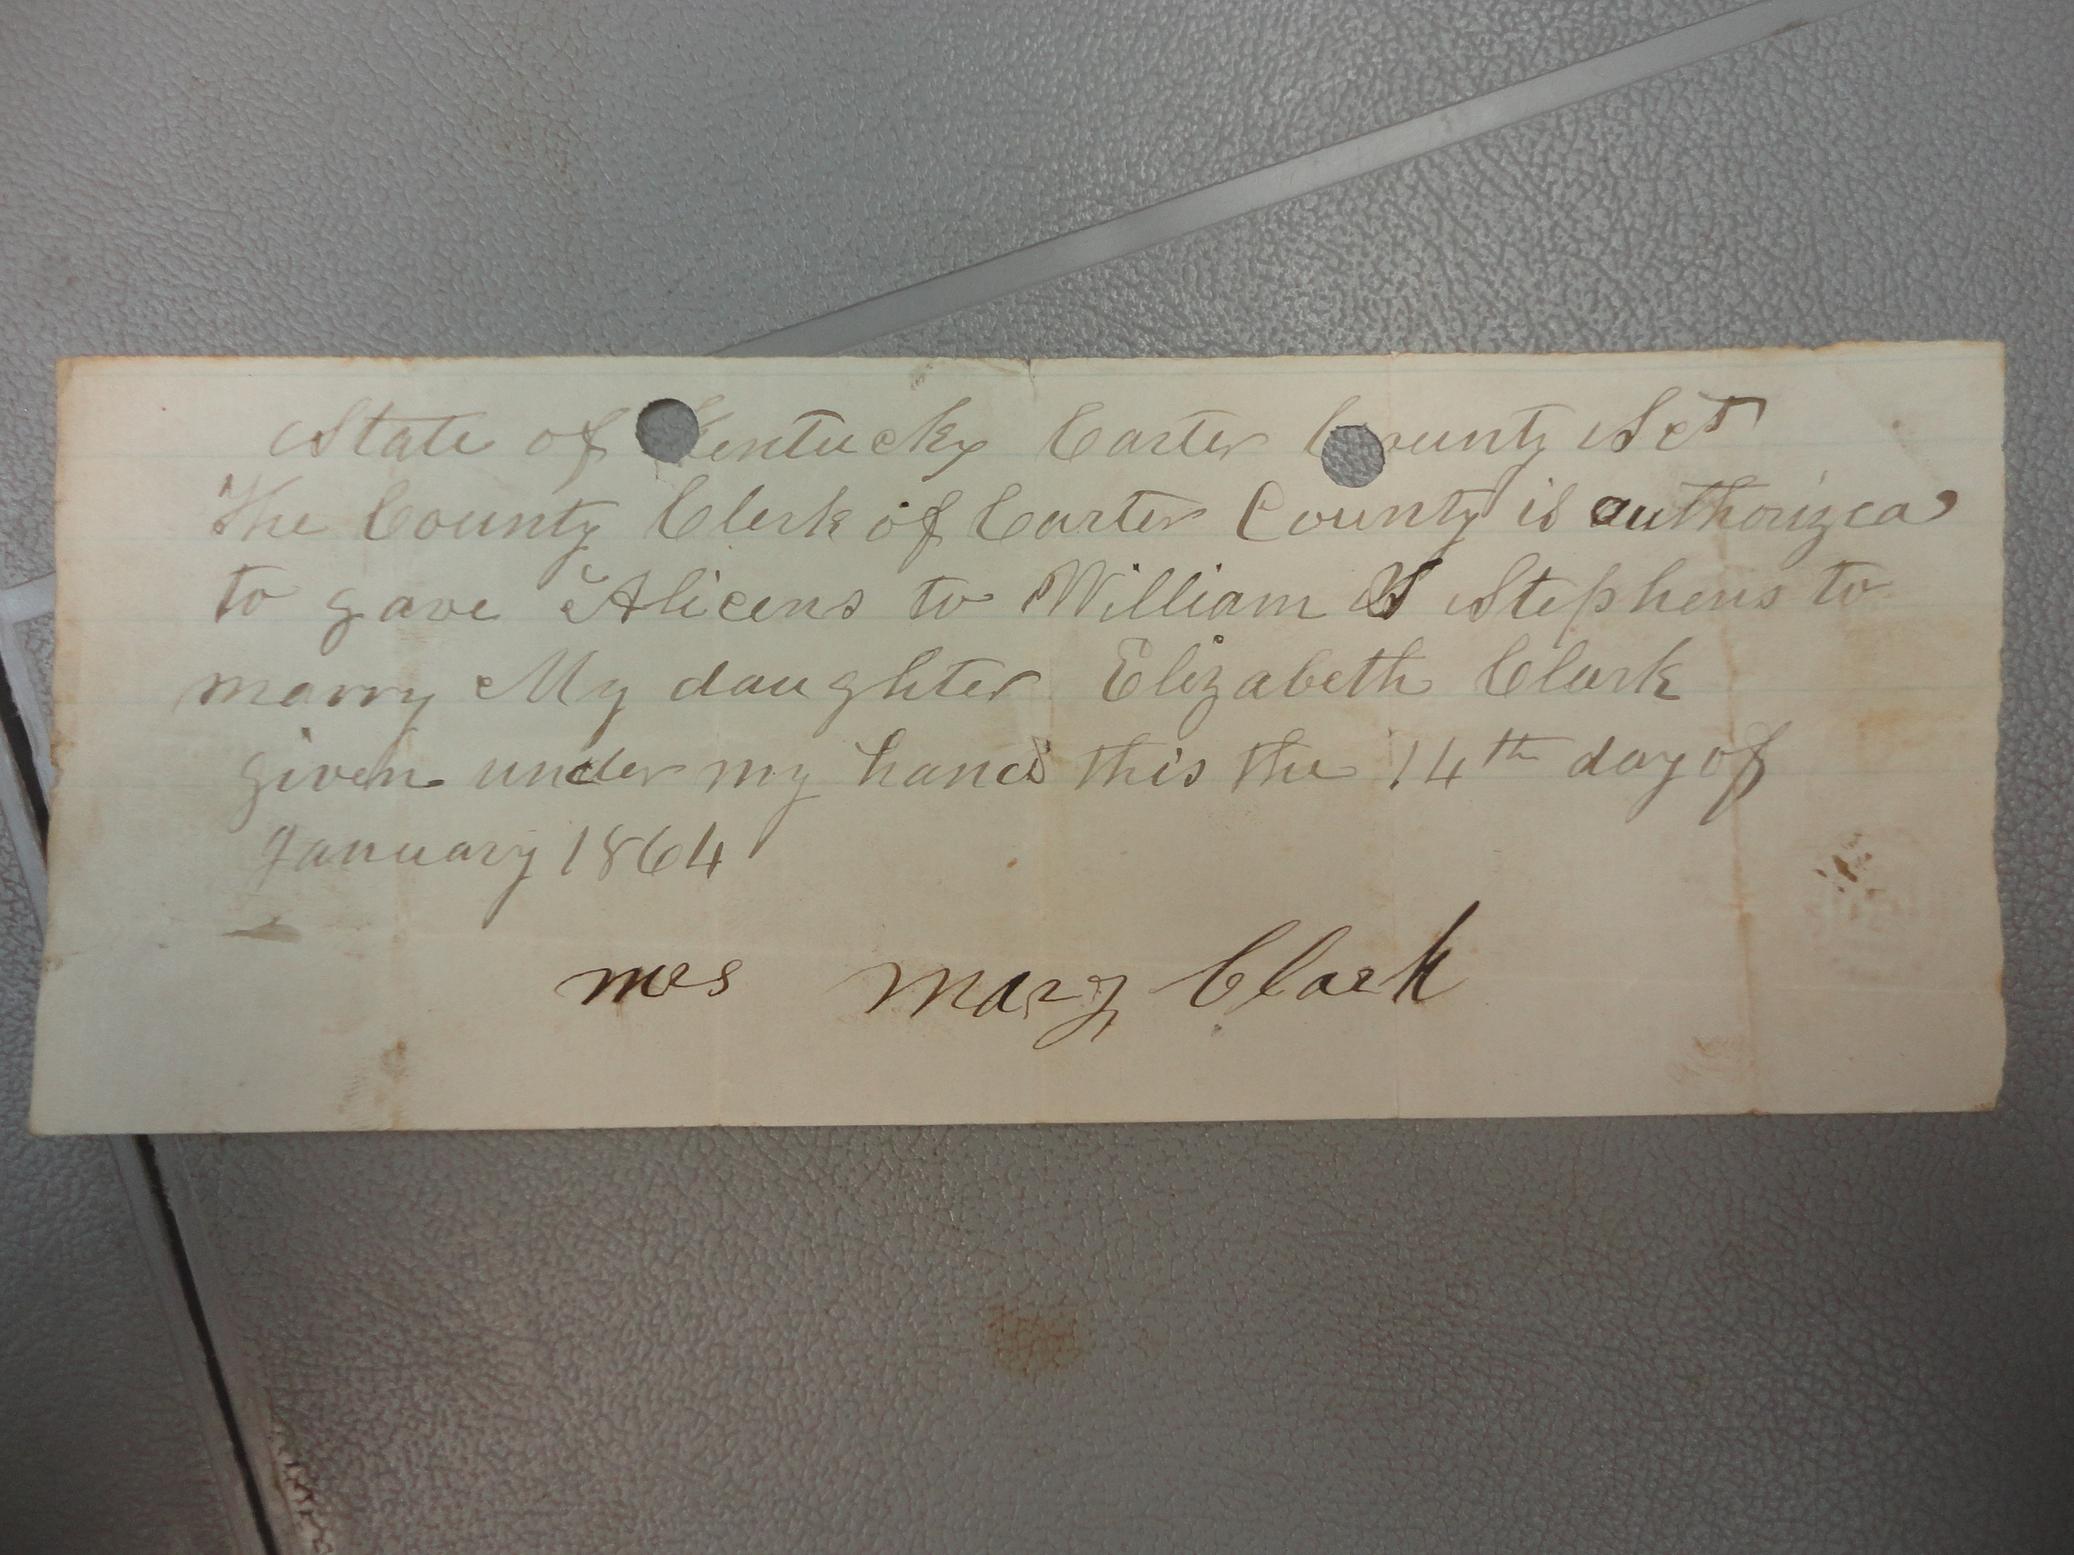 State of Kentucky Carter County Sct
The County Clerk of Carter County is authorized
to gave Alicens to William S Stephens to
marry My daughter Elizabeth Clark
given under my hand this the 14th day of
January 1864
mrs mary Clark